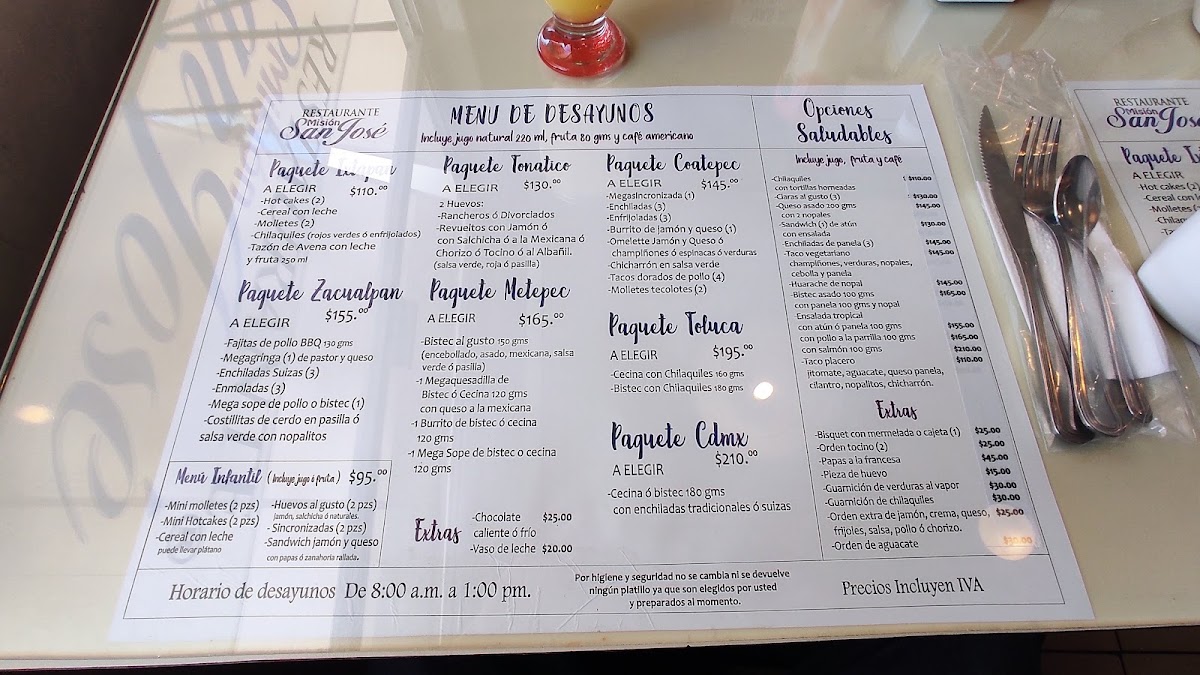 RESTAURANTE
Misión
San José
MENU DE DESAYUNOS
Incluye jugo natural 220 ml, fruta 80 gms y café americano
Paquete Ixtapan
A ELEGIR $110.00
-Hot cakes (2)
-Cereal con leche
-Molletes (2)
-Chilaquiles (rojos verdes ó enfrijolados)
-Tazón de Avena con leche
y fruta 250 ml
Paquete Zacualpan
A ELEGIR $155.00
-Fajitas de pollo BBQ 130 gms
-Megagringa (1) de pastor y queso
-Enchiladas Suizas (3)
-Enmoladas (3)
-Mega sope de pollo o bistec (1)
-Costillitas de cerdo en pasilla ó
salsa verde con nopalitos
Menú Infantil (Incluye jugo ó fruta) $95.00
-Mini molletes (2 pzs)
-Mini Hotcakes (2 pzs)
-Cereal con leche
puede llevar plátano
-Huevos al gusto (2 pzs)
Jamón, salchicha ó naturales.
- Sincronizadas (2 pzs)
-Sandwich jamón y queso
con papas ó zanahoria rallada.
Paquete Tonatico
A ELEGIR $130.00
2 Huevos:
-Rancheros ó Divorciados
-Revueltos con Jamón ó
con Salchicha ó a la Mexicana ó
Chorizo ó Tocino ó al Albañil.
(salsa verde, roja ó pasilla)
Paquete Metepec
A ELEGIR $165.00
-Bistec al gusto 150 gms
(encebollado, asado, mexicana, salsa
verde ó pasilla)
-1 Megaquesadilla de
Bistec ó Cecina 120 gms
con queso a la mexicana
-1 Burrito de bistec ó cecina
120 gms
-1 Mega Sope de bistec o cecina
120 gms
Extras
-Chocolate $25.00
caliente ó frío
-Vaso de leche $20.00
Paquete Coatepec
A ELEGIR $145.00
-Megasincronizada (1)
-Enchiladas (3)
-Enfrijoladas (3)
-Burrito de Jamón y queso (1)
-Omelette Jamón y Queso ó
champiñones ó espinacas ó verduras
-Chicharrón en salsa verde
-Tacos dorados de pollo (4)
-Molletes tecolotes (2)
Paquete Toluca
A ELEGIR $195.00
-Cecina con Chilaquiles 160 gms
-Bistec con Chilaquiles 180 gms
Paquete Cdmx
A ELEGIR $210.00
-Cecina ó bistec 180 gms
con enchiladas tradicionales ó suizas
Opciones
Saludables
Incluye jugo, fruta y café
-Chilaquiles $110.00
con tortillas horneadas
-Claras al gusto (3) $130.00
-Queso asado 200 gms $145.00
con 2 nopales
-Sandwich (1) de atún $130.00
con ensalada
-Enchiladas de panela (3) $145.00
-Taco vegetariano $145.00
champiñones, verduras, nopales,
cebolla y panela
-Huarache de nopal $145.00
-Bistec asado 100 grs $165.00
con panela 100 grs y nopal
-Ensalada tropical
con atún ó panela 100 grms $155.00
con pollo a la parrilla 100 grms $165.00
con salmón 100 grms $210.00
-Taco placero $110.00
jitomate, aguacate, queso panela,
cilantro, nopalitos, chicharrón.
Extras
-Bisquet con mermelada o cajeta (1) $25.00
-Orden tocino (2) $25.00
-Papas a la francesa $45.00
-Pieza de huevo $15.00
-Guarnición de verduras al vapor $30.00
-Guarnición de chilaquiles $30.00
-Orden extra de jamón, crema, queso, $25.00
frijoles, salsa, pollo ó chorizo.
-Orden de aguacate $30.00
Horario de desayunos De 8:00 a.m. a 1:00 pm.
Por higiene y seguridad no se cambia ni se devuelve
ningún platillo ya que son elegidos por usted
y preparados al momento.
Precios Incluyen IVA
RESTAURANTE
Misión
San José
Paquete
A ELEGIR
-Hot cakes (2)
-Cereal con
-Molletes